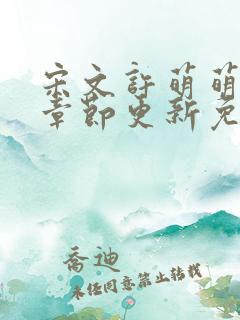 宋文许萌萌
章节更新免
乔迪
未经同意禁止转载